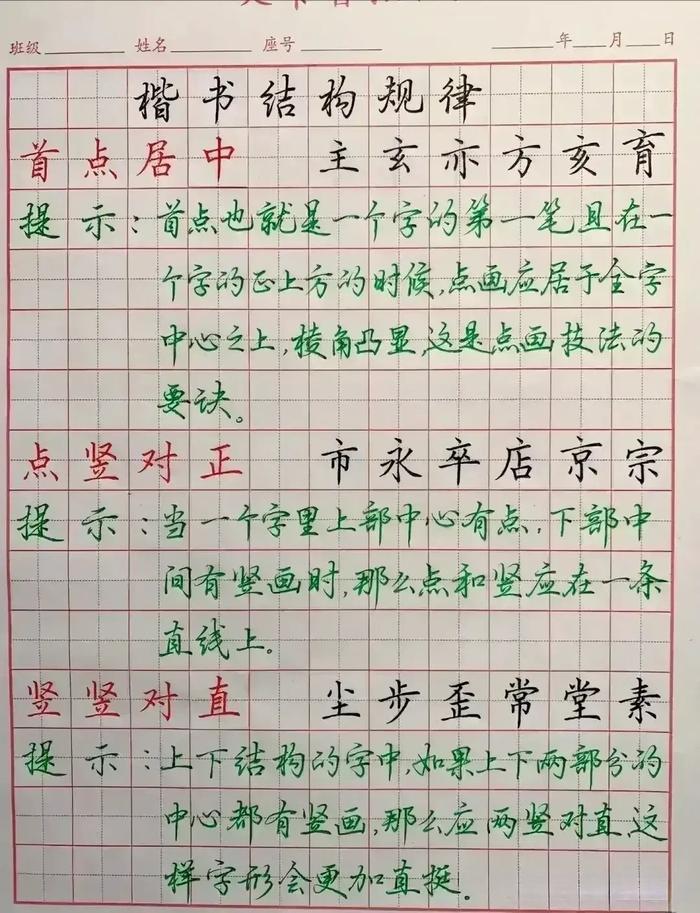 班级 姓名 座号 年 月 日
楷书结构规律
首点居中 主玄亦方亥育
提示：首点也就是一个字的第一笔且在一
个字的正上方的时候,点画应居于全字
中心之上,棱角凸显,这是点画技法的
要诀。
点竖对正 市永卒店京宗
提示：当一个字里上部中心有点,下部中
间有竖画时,那么点和竖应在一条
直线上。
竖竖对直 尘步歪常堂素
提示：上下结构的字中,如果上下两部分的
中心都有竖画,那么应两竖对直,这
样字形会更加直挺。